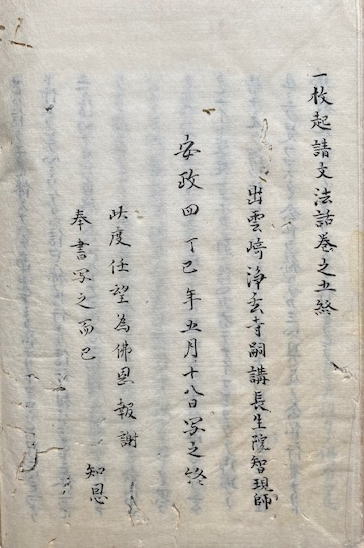 一枚起請文法話巻之五終
出雲崎浄玄寺嗣講長生院智現師
安政四丁巳年五月十八日写之終
此度任望為佛恩報謝
奉書写之而已
知恩